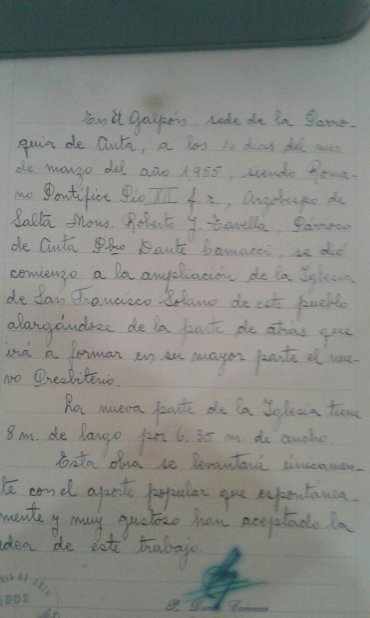 En El Galpón, sede de la Parro-
quia de Anta, a los 16 dias del mes
de marzo del año 1,955, siendo Roma-
no Pontífice Pío XII f. r., Arzobispo de
Salta Mons. Roberto J. Tavella, Párroco
de Anta Pbro Dante Camacci, se dió
comienzo a la ampliación de la Iglesia
de San Francisco Solano de este pueblo
alargándose de la parte de atrás que
irá a formar en su mayor parte el nue-
vo Presbiterio.
La nueva parte de la Iglesia tiene
8 m. de largo por 6,35 m. de ancho.
Esta obra se levantará únicamen-
te con el aporte popular que espontánea-
mente y muy gustoso han aceptado la
idea de este trabajo.
P. Dante Camacci